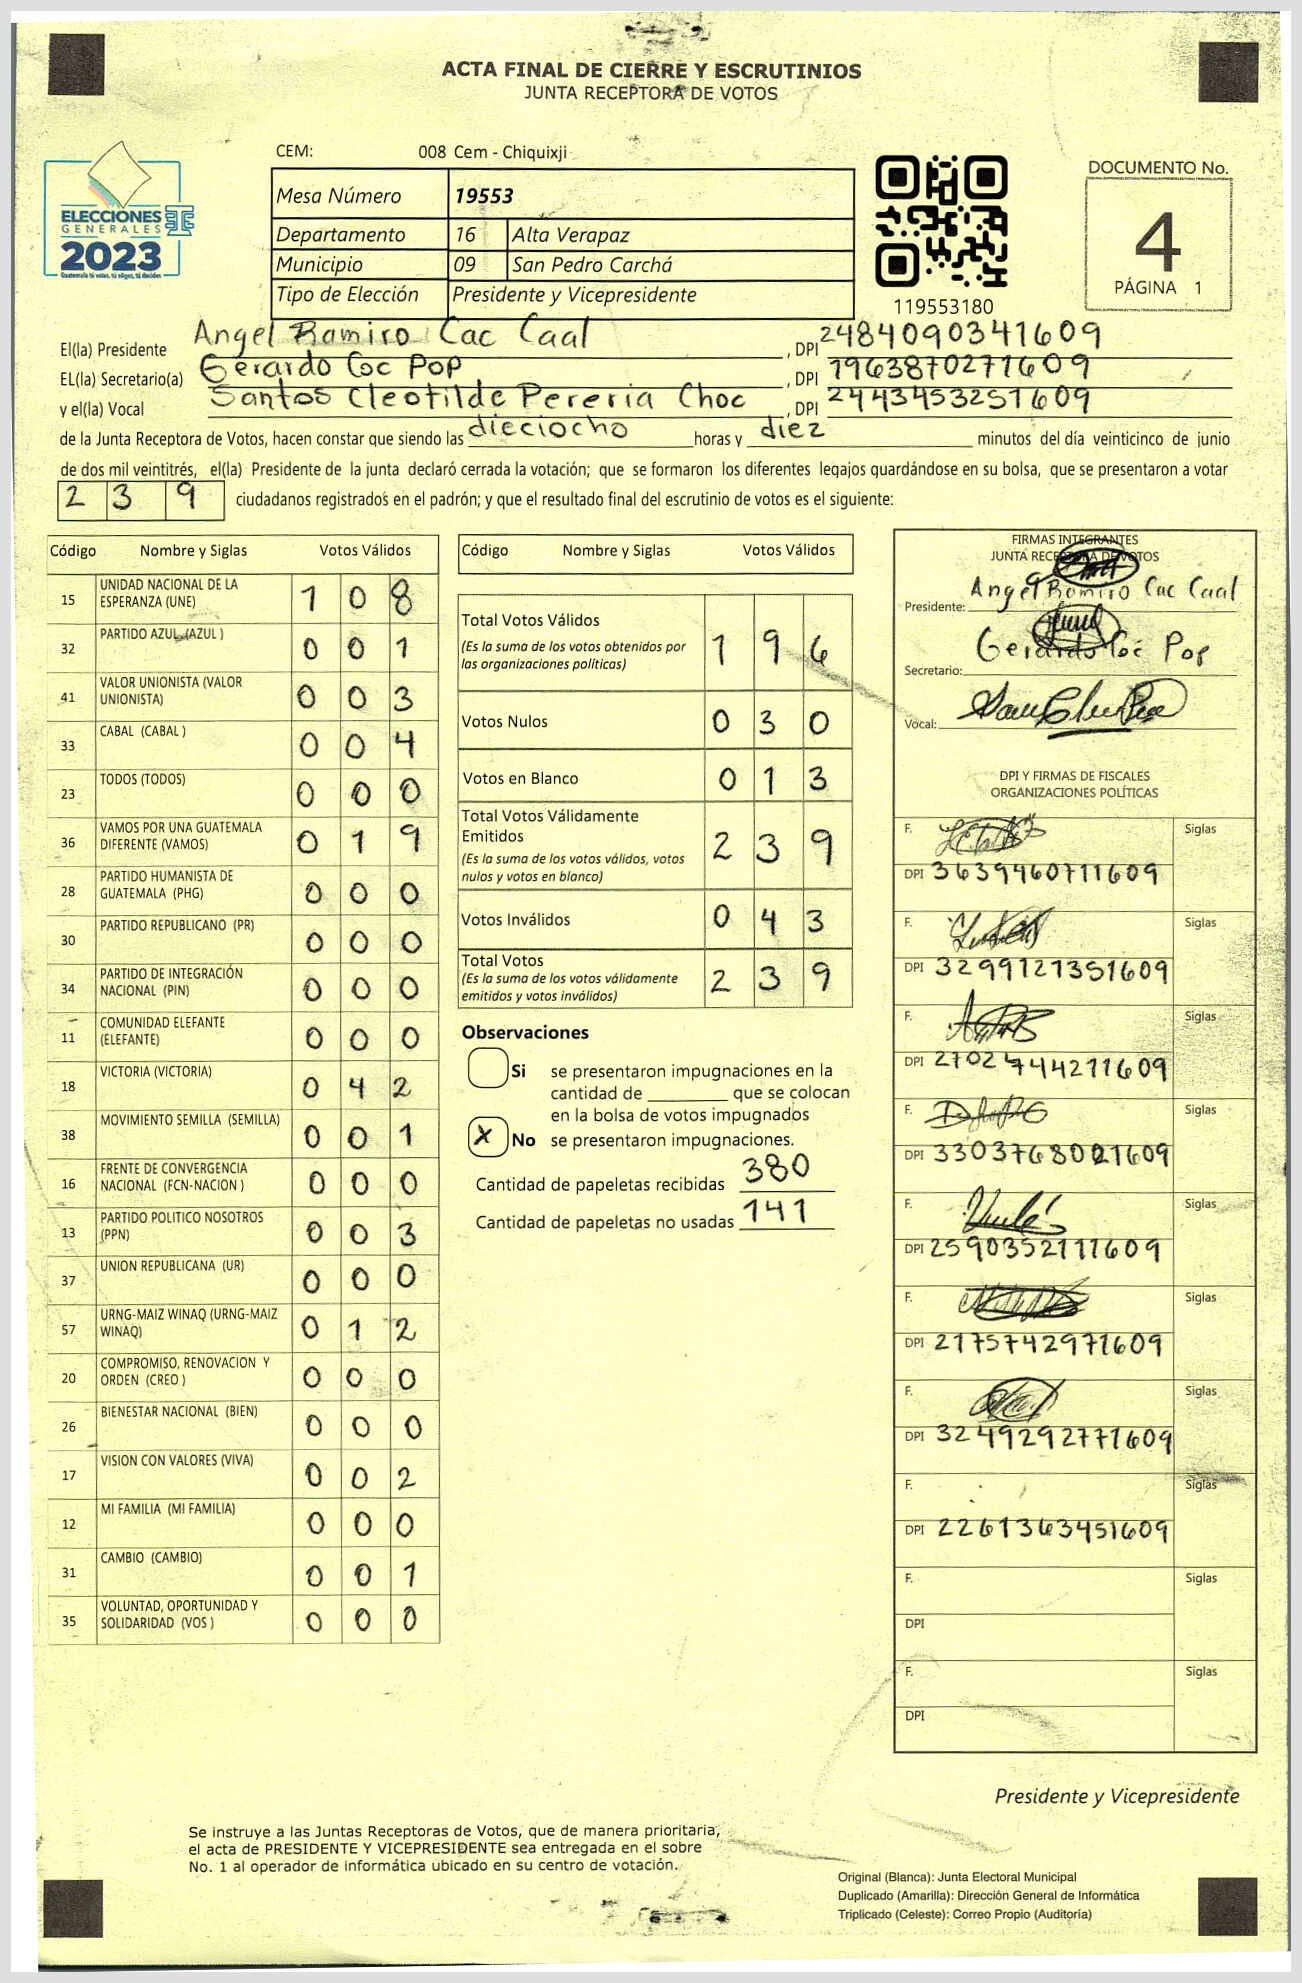 ACTA FINAL DE CIERRE Y ESCRUTINIOS
JUNTA RECEPTORA DE VOTOS
ELECCIONES
GENERALES
2023
Guatemala tú votas, tú eliges, tú decides
CEM: 008 Cem - Chiquixji
Mesa Número 19553
Departamento 16 Alta Verapaz
Municipio 09 San Pedro Carchá
Tipo de Elección Presidente y Vicepresidente
119553180
DOCUMENTO No.
4
PÁGINA 1
El(la) Presidente Angel Ramiro Cac Caal , DPI 2484090341609
EL(la) Secretario(a) Gerardo Coc Pop , DPI 1963870271609
y el(la) Vocal Santos Cleotilde Pereria Choc , DPI 2443453251609
de la Junta Receptora de Votos, hacen constar que siendo las dieciocho horas y diez minutos del día veinticinco de junio
de dos mil veintitrés, el(la) Presidente de la junta declaró cerrada la votación; que se formaron los diferentes legajos guardándose en su bolsa, que se presentaron a votar
2 3 9 ciudadanos registrados en el padrón; y que el resultado final del escrutinio de votos es el siguiente:
Código Nombre y Siglas Votos Válidos
15 UNIDAD NACIONAL DE LA ESPERANZA (UNE) 1 0 8
32 PARTIDO AZUL (AZUL ) 0 0 1
41 VALOR UNIONISTA (VALOR UNIONISTA) 0 0 3
33 CABAL (CABAL ) 0 0 4
23 TODOS (TODOS) 0 0 0
36 VAMOS POR UNA GUATEMALA DIFERENTE (VAMOS) 0 1 9
28 PARTIDO HUMANISTA DE GUATEMALA (PHG) 0 0 0
30 PARTIDO REPUBLICANO (PR) 0 0 0
34 PARTIDO DE INTEGRACIÓN NACIONAL (PIN) 0 0 0
11 COMUNIDAD ELEFANTE (ELEFANTE) 0 0 0
18 VICTORIA (VICTORIA) 0 4 2
38 MOVIMIENTO SEMILLA (SEMILLA) 0 0 1
16 FRENTE DE CONVERGENCIA NACIONAL (FCN-NACION ) 0 0 0
13 PARTIDO POLITICO NOSOTROS (PPN) 0 0 3
37 UNION REPUBLICANA (UR) 0 0 0
57 URNG-MAIZ WINAQ (URNG-MAIZ WINAQ) 0 1 2
20 COMPROMISO, RENOVACION Y ORDEN (CREO ) 0 0 0
26 BIENESTAR NACIONAL (BIEN) 0 0 0
17 VISION CON VALORES (VIVA) 0 0 2
12 MI FAMILIA (MI FAMILIA) 0 0 0
31 CAMBIO (CAMBIO) 0 0 1
35 VOLUNTAD, OPORTUNIDAD Y SOLIDARIDAD (VOS ) 0 0 0
Código Nombre y Siglas Votos Válidos
Total Votos Válidos
(Es la suma de los votos obtenidos por
las organizaciones políticas) 1 9 6
Votos Nulos 0 3 0
Votos en Blanco 0 1 3
Total Votos Válidamente
Emitidos
(Es la suma de los votos válidos, votos
nulos y votos en blanco) 2 3 9
Votos Inválidos 0 4 3
Total Votos
(Es la suma de los votos válidamente
emitidos y votos inválidos) 2 3 9
Observaciones
Si se presentaron impugnaciones en la
cantidad de ________ que se colocan
en la bolsa de votos impugnados
X No se presentaron impugnaciones.
Cantidad de papeletas recibidas 380
Cantidad de papeletas no usadas 141
FIRMAS INTEGRANTES
JUNTA RECEPTORA DE VOTOS
Presidente: Angel Ramiro Cac Caal
Secretario: Gerardo Coc Pop
Vocal:
DPI Y FIRMAS DE FISCALES
ORGANIZACIONES POLÍTICAS
F. Siglas
DPI 3639460711609
F. Siglas
DPI 3299121351609
F. Siglas
DPI 2702744271609
F. Siglas
DPI 3303768021609
F. Siglas
DPI 2590352111609
F. Siglas
DPI 2175742971609
F. Siglas
DPI 3249292771609
F. Siglas
DPI 2261363451609
F. Siglas
DPI
F. Siglas
DPI
Presidente y Vicepresidente
Se instruye a las Juntas Receptoras de Votos, que de manera prioritaria,
el acta de PRESIDENTE Y VICEPRESIDENTE sea entregada en el sobre
No. 1 al operador de informática ubicado en su centro de votación.
Original (Blanca): Junta Electoral Municipal
Duplicado (Amarilla): Dirección General de Informática
Triplicado (Celeste): Correo Propio (Auditoría)